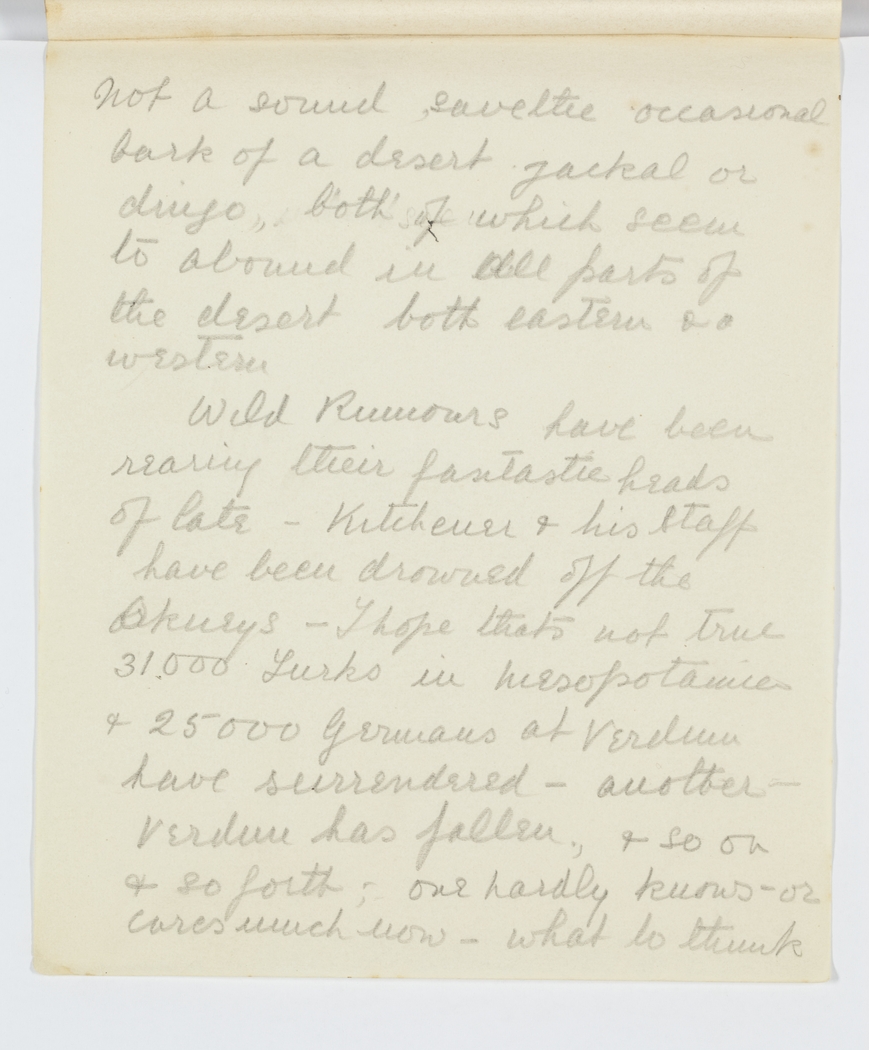 Not a sound, save the occasional
bark of a desert jackal or
dingo, both of which seem
to abound in all parts of
the desert both eastern &
western
Wild Rumours have been
rearing their fantastic heads
of late – Kitchener & his Staff
have been drowned off the
Orkneys – I hope thats not true
31.000 Turks in Mesopotamia
& 25000 Germans at Verdun
have surrendered – another –
Verdun has fallen, & so on
& so forth; one hardly knows – or
cares much now – what to think